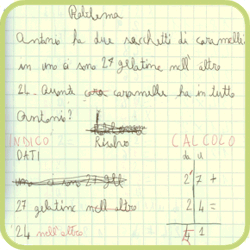 Problema
Antonio ha due sacchetti di caramelle
in uno ci sono 27 gelatine nell'altro
24. Quante caramelle ha in tutto
Antonio?
INDICO Risolvo CALCOLO
DATI da u
27 +
27 gelatine nell'altro 24 =
24 nell'altro 51